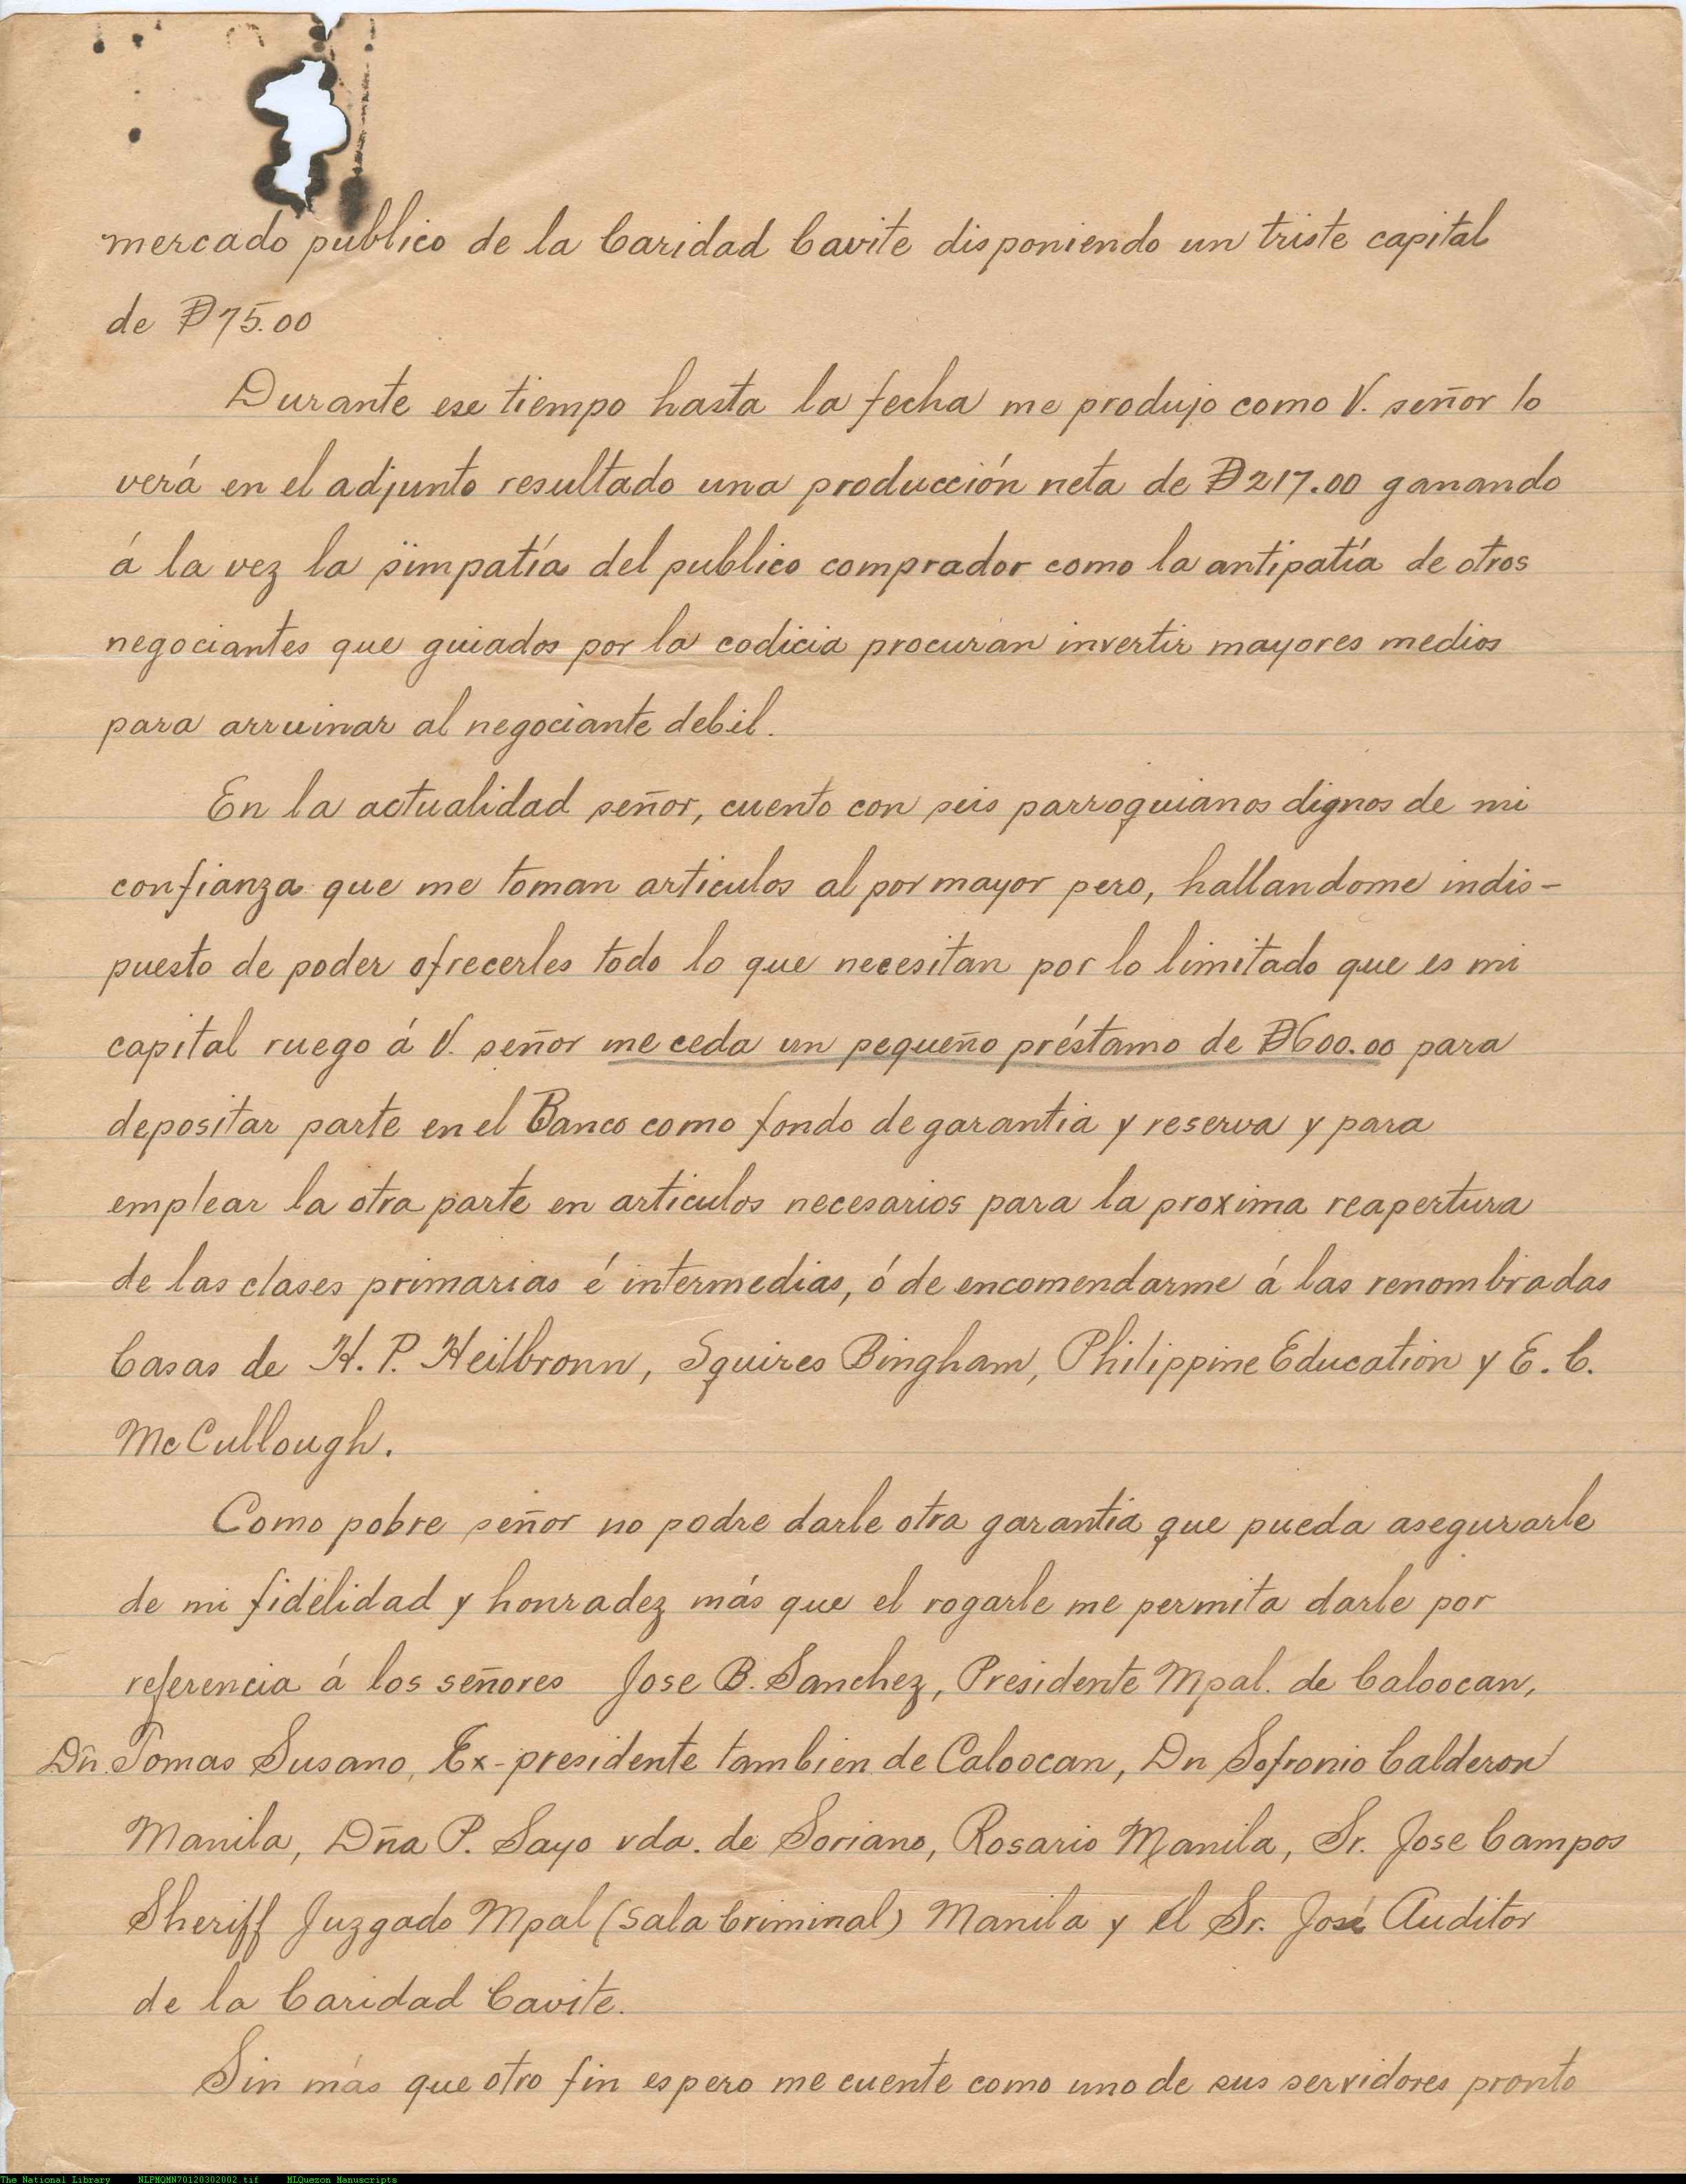 mercado publico de la Caridad Cavite disponiendo un triste capital
de ₱75.00
Durante ese tiempo hasta la fecha me produjo como V. señor lo
verá en el adjunto resultado una producción neta de ₱217.00 ganando
á la vez la simpatía del publico comprador como la antipatía de otros
negociantes que guiados por la codicia procuran invertir mayores medios
para arruinar al negociante debil.
En la actualidad señor, cuento con seis parroquianos dignos de mi
confianza que me toman articulos al por mayor pero, hallandome indis-
puesto de poder ofrecerles todo lo que necesitan por lo limitado que es mi
capital ruego á V. señor me ceda un pequeño préstamo de ₱600.00 para
depositar parte en el Banco como fondo de garantia y reserva y para
emplear la otra parte en articulos necesarios para la proxima reapertura
de las clases primarias é intermedias, ó de encomendarme á las renombradas
Casas de H. P. Heilbronn, Squires Bingham, Philippine Education y E. C.
McCullough.
Como pobre señor no podre darle otra garantia que pueda asegurarle
de mi fidelidad y honradez más que el rogarle me permita darle por
referencia á los señores Jose B. Sanchez, Presidente Mpal. de Caloocan,
Dn. Tomas Susano, Ex-presidente tambien de Caloocan, Dn Sofronio Calderon
Manila, Dña P. Sayo vda. de Soriano, Rosario Manila, Sr. Jose Campos
Sheriff Juzgado Mpal (Sala Criminal) Manila y el Sr. José Auditor
de la Caridad Cavite.
Sin más que otro fin espero me cuente como uno de sus servidores pronto
The National Library NLPMQMN70120302002.tif MLQuezon Manuscripts